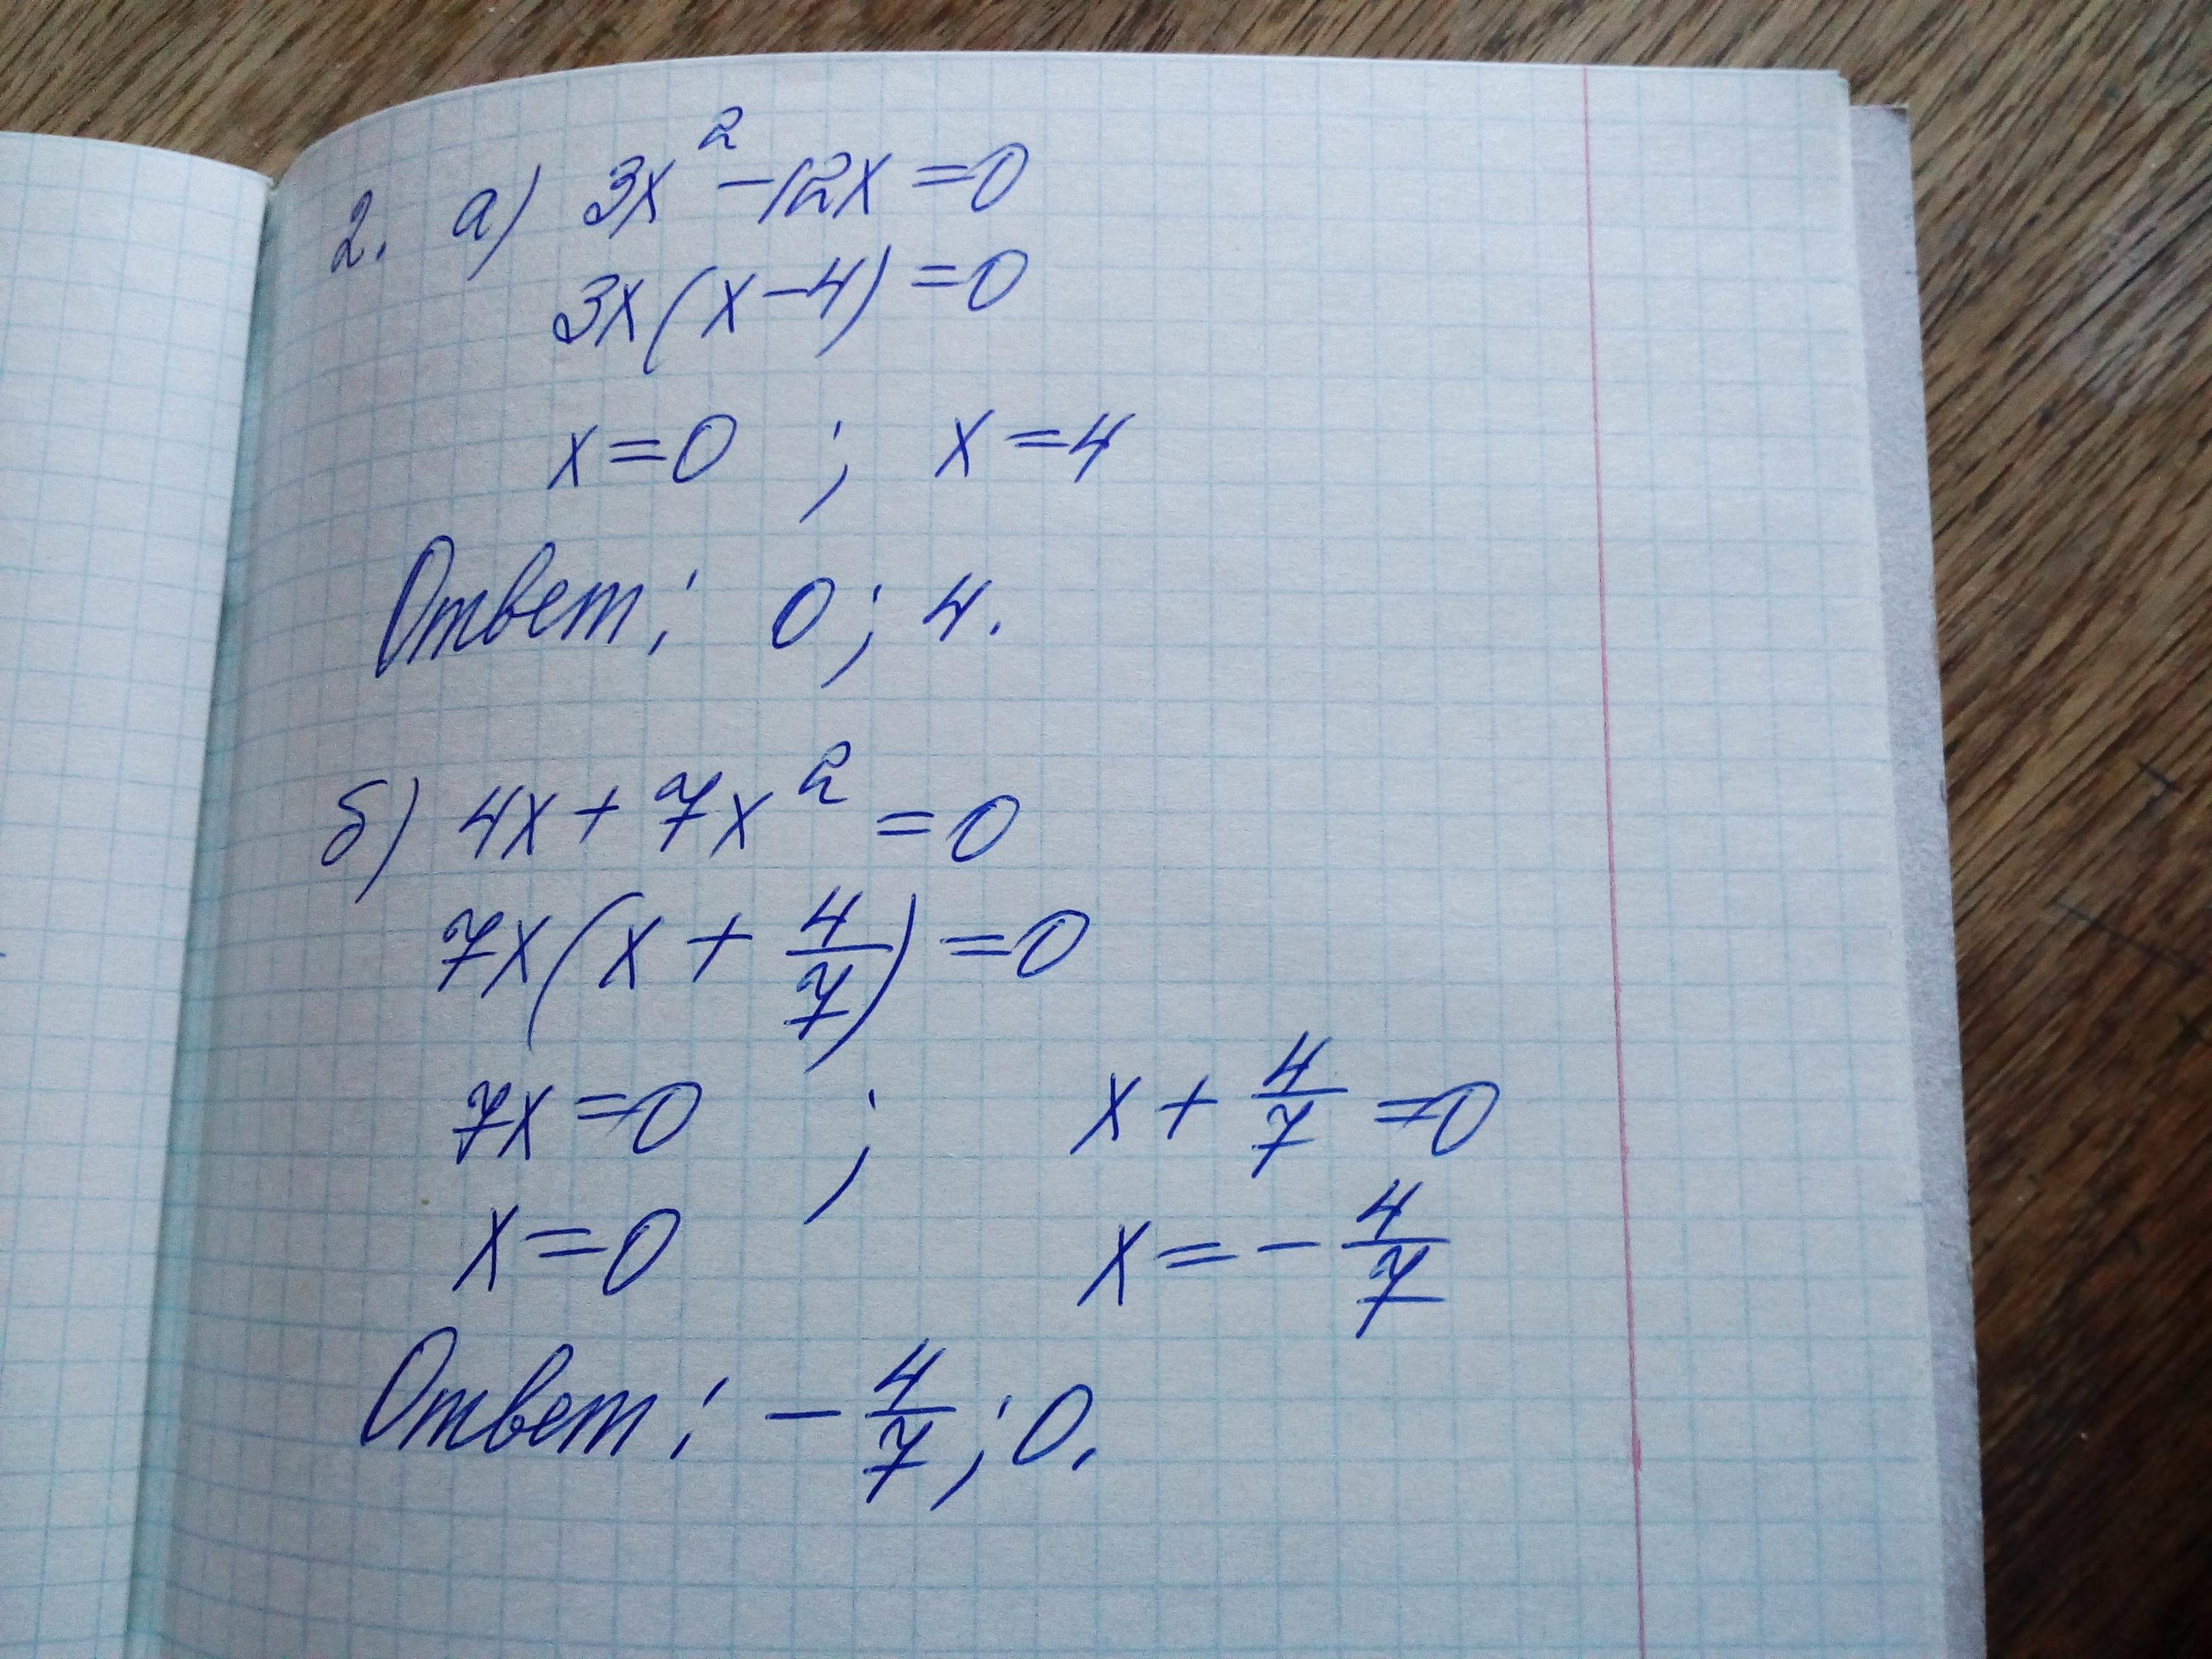 2. а) 3x² - 12x = 0
3x(x - 4) = 0
x = 0 ; x = 4
Ответ: 0; 4.
б) 4x + 7x² = 0
7x(x + 4/7) = 0
7x = 0 ; x + 4/7 = 0
x = 0 x = - 4/7
Ответ: - 4/7; 0.